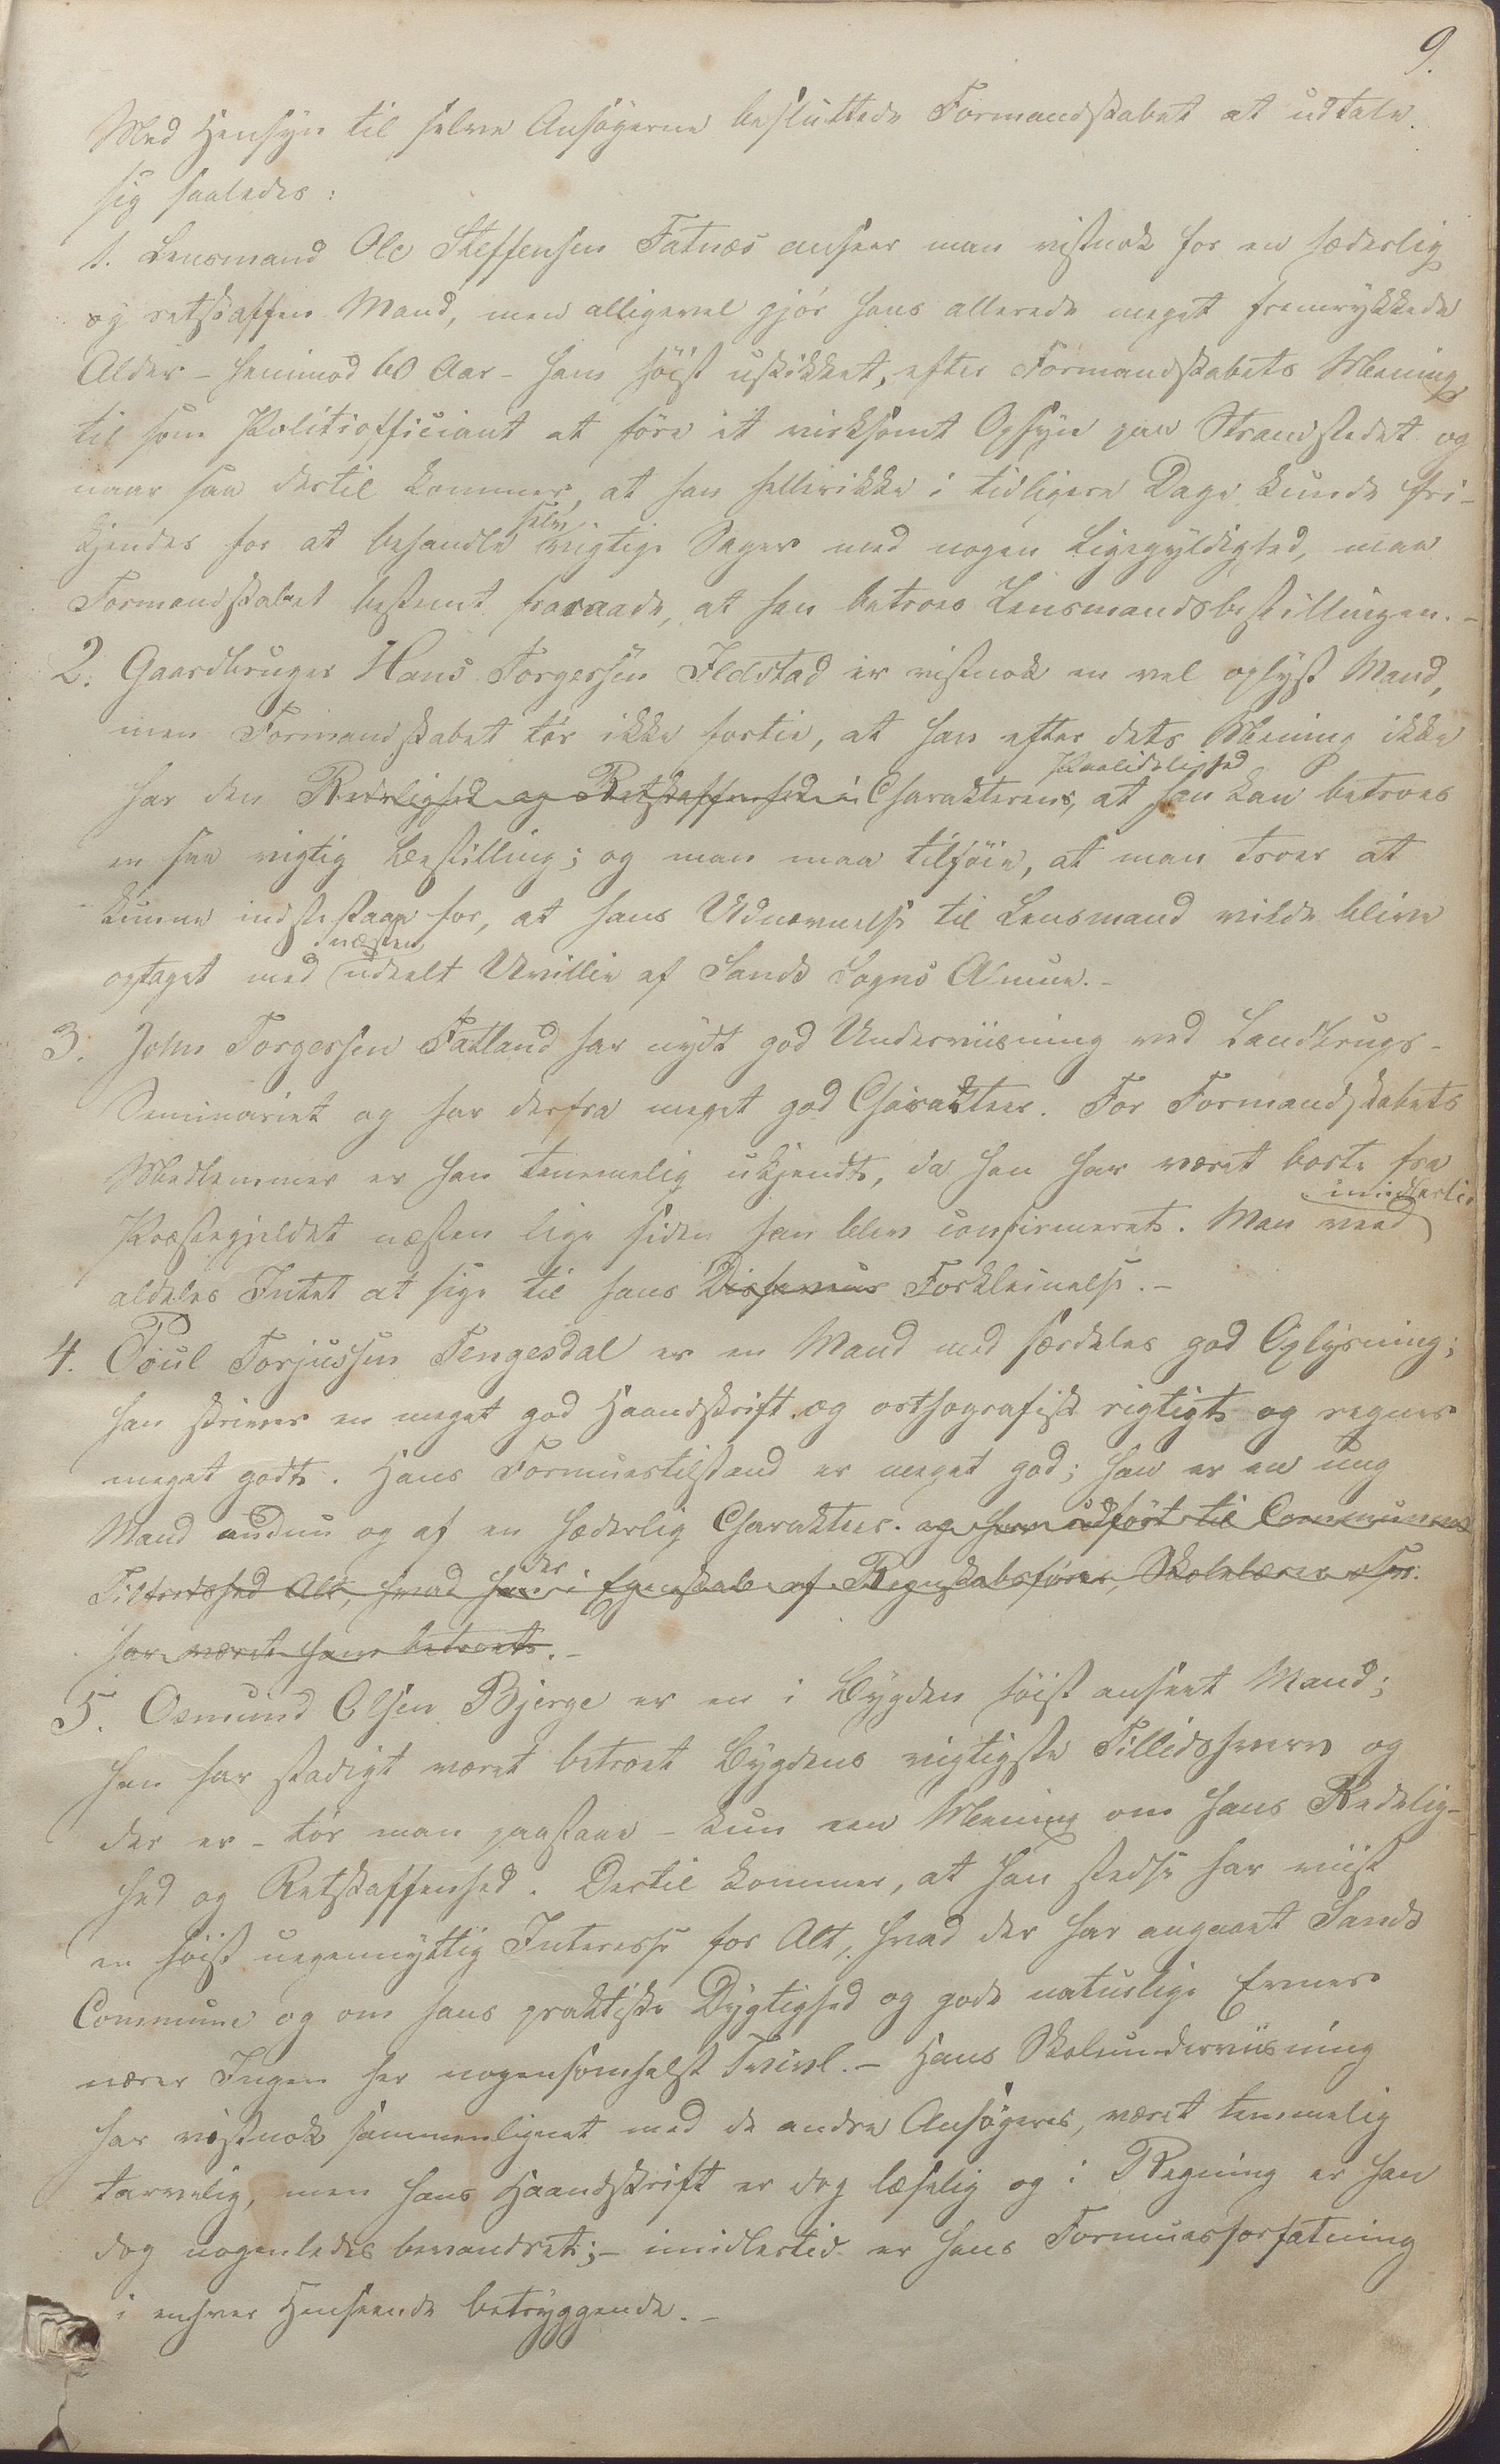 9.
Med Hensyn til selve Ansøgerne besluttede Formandskabet at udtale
sig saaledes:
1. Lensmand Ole Steffensen Fatnæs anseer man vistnok for en hæderlig
og retskaffen Mand, men alligevel gjør hans allerede meget fremrykkede
Alder - henimod 60 Aar - ham høist uskikket, efter Formandskabets Mening,
til som Politiofficiant at føre et virksomt Opsyn paa Strandstedet og
naar saa dertil kommer, at han hellerikke i tidligere Dage kunde fri-
kjendes for at behandle selv vigtige Sager med nogen Ligegyldighed, maa
Formandskabet bestemt fraraade, at han betroes Lensmandsbestillingen. -
2. Gaardbruger Hans Torgersen Ilstad er vistnok en vel oplyst Mand,
men Formandskabet tør ikke fortie, at han efter dets Mening ikke
har den Redelighed og Retskaffenhed i Charakterens Paalidelighed, at han kan betroes
en saa vigtig Bestilling; og man maa tilføie, at man troer at
kunne indestaae for, at hans Udnævnelse til Lensmand vilde blive
optaget med næsten udeelt Uvillie af Sands Sogns Almue. -
3. John Torgersen Fatland har nydt god Underviisning ved Landbrugs-
Seminariet og har derfra meget god Charakteer. For Formandskabets
Medlemmer er han temmelig ukjendt, da han har været borte fra
Præstegjeldet næsten lige siden han blev confirmeret. Man veed imidlertid
aldeles Intet at sige til hans Disfaveur Forkleinelse. -
4. Poul Torjussen Tengesdal er en Mand med særdeles god Oplysning;
han skriver en meget god Haandskrift og orthografisk rigtigt og regner
meget godt. Hans Formuestilstand er meget god; han er en ung
Mand endnu og af en hæderlig Charakteer. og han udført til Communens
Tilfredshed Alt, hvad der i Egenskab af Regnskabsfører, Skolelærer
har været ham betroet. -
5. Osmund Olsen Bjerge er en i Bygden høist anseet Mand;
han har stadigt været betroet Bygdens vigtigste Tillidshverv og
der er - tør man paastaae - kun een Mening om hans Redelig-
hed og Retskaffenhed. Dertil kommer, at han stedse har viist
en høist uegennyttig Interesse for Alt, hvad der har angaaet Sands
Commune og om hans praktiske Dygtighed og gode naturlige Evner
nærer Ingen her nogensomhelst Tvivl. - Hans Skoleunderviisning
har vistnok sammenlignet med de andre Ansøgeres, været temmelig
tarvelig, men hans Haandskrift er dog læselig og i Regning er han
dog nogenledes bevandret; - imidlertid er hans Formuesforfatning
i enhver Henseende betryggende. -